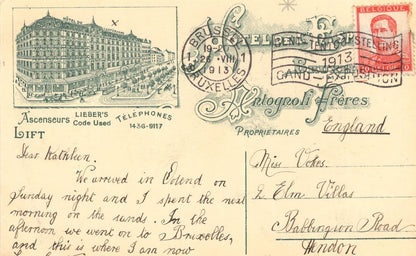 BRUSSEL
1 BRUXELLES 1
19-20
25-VIII
1913
BELGIQUE
WERELDTENTOONSTELLING
1913
GAND-EXPOSITION
Antognoli Frères
PROPRIÉTAIRES
Ascenseurs
LIFT
LIEBER'S
Code Used
TÉLÉPHONES
1436-9117
England
Dear Kathleen.
We arrived in Ostend on
Sunday night and I spent the next
morning on the sands. In the
afternoon we went to Bruxelles,
and this is where I am now
Miss Vokes.
2 Elm Villas
Babbington Road
Hendon